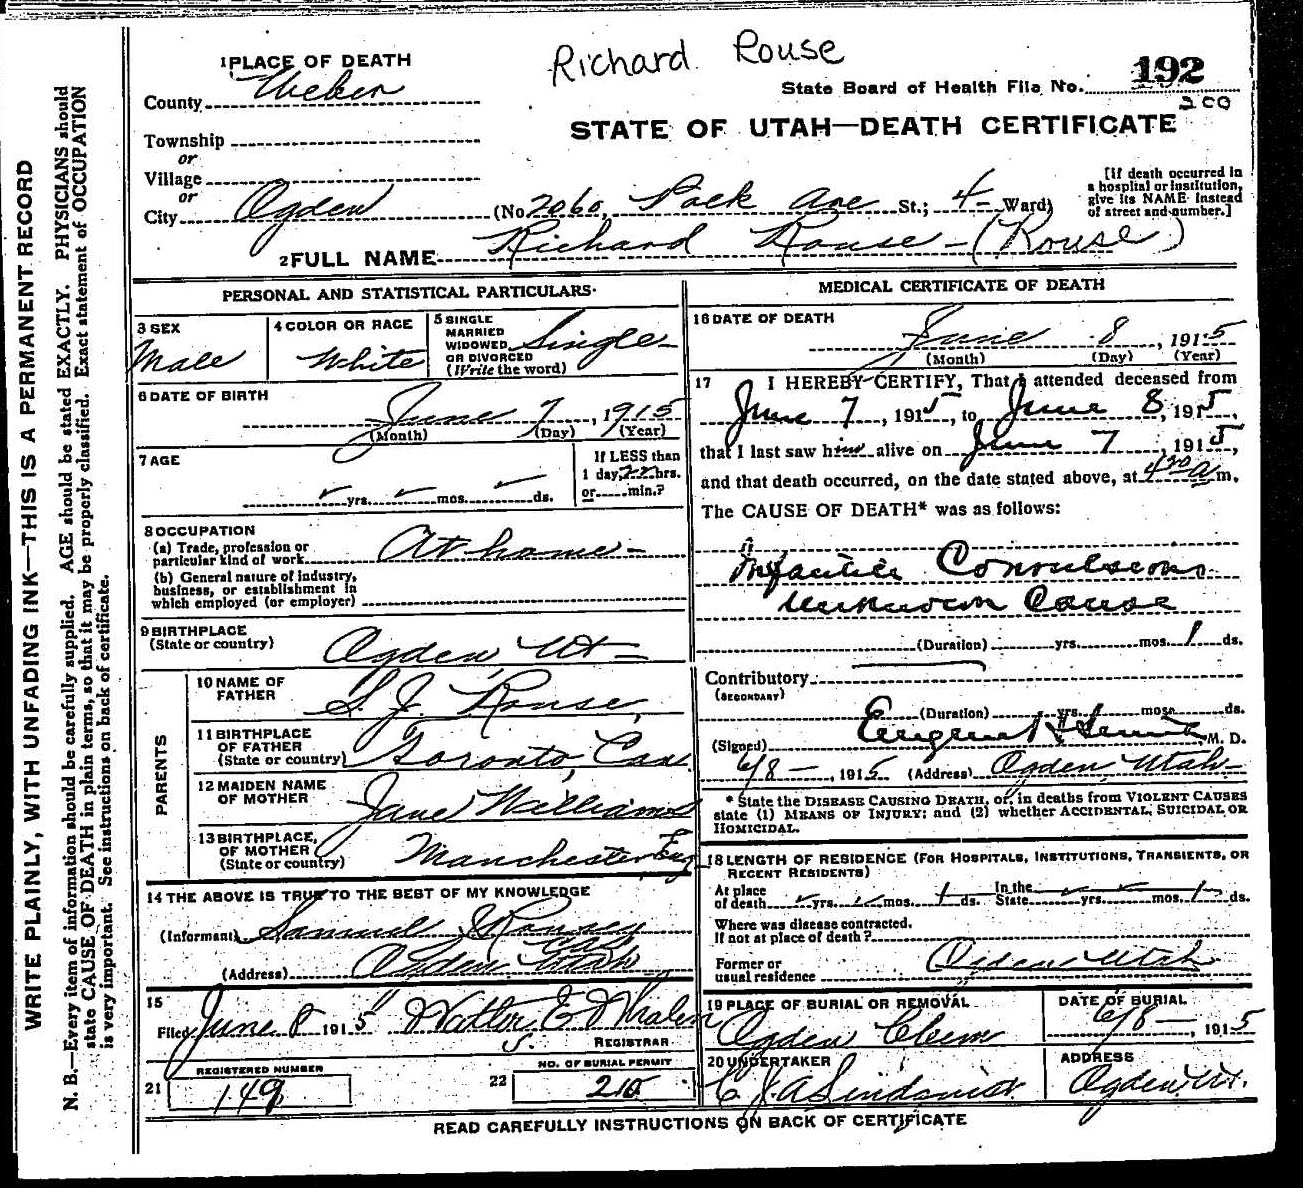 Richard Rouse
1 PLACE OF DEATH
County Weber
State Board of Health File No. 192
200
STATE OF UTAH—DEATH CERTIFICATE
Township
or
Village
or
City Ogden (No 2060, Ave St.; 4- Ward)
[If death occurred in a hospital or institution, give its NAME instead of street and number.]
2 FULL NAME Richard Rouse - (Rouse)
PERSONAL AND STATISTICAL PARTICULARS
3 SEX
Male
4 COLOR OR RACE
White
5 SINGLE
MARRIED
WIDOWED
OR DIVORCED
(Write the word)
Single
6 DATE OF BIRTH
June 7, 1915
(Month) (Day) (Year)
7 AGE
yrs. mos. ds.
If LESS than
1 day, 22 hrs.
or min.?
8 OCCUPATION
(a) Trade, profession or
particular kind of work At home -
(b) General nature of industry,
business, or establishment in
which employed (or employer)
9 BIRTHPLACE
(State or country)
Ogden Ut -
PARENTS
10 NAME OF
FATHER
S. J. Rouse,
11 BIRTHPLACE
OF FATHER
(State or country)
Toronto, Can
12 MAIDEN NAME
OF MOTHER
Jane Williams
13 BIRTHPLACE,
OF MOTHER
(State or country)
Manchester, Eng
14 THE ABOVE IS TRUE TO THE BEST OF MY KNOWLEDGE
(Informant) Samuel J
(Address) Ogden Utah
15
Filed June 8 1915 Walter E Whalen
REGISTRAR
21
REGISTERED NUMBER
149
22
NO. OF BURIAL PERMIT
215
MEDICAL CERTIFICATE OF DEATH
16 DATE OF DEATH
June 8, 1915
(Month) (Day) (Year)
17 I HEREBY CERTIFY, That I attended deceased from
June 7, 1915, to June 8, 1915,
that I last saw him alive on June 7, 1915,
and that death occurred, on the date stated above, at 4 30 a m.
The CAUSE OF DEATH* was as follows:
Infantile Convulsions
Unknown Cause
(Duration) yrs. mos. 1 ds.
Contributory
(SECONDARY)
(Duration) yrs. mos. ds.
(Signed) Eugene H Smith, M. D.
6/8 -, 1915 (Address) Ogden Utah -
* State the DISEASE CAUSING DEATH, or, in deaths from VIOLENT CAUSES
state (1) MEANS OF INJURY; and (2) whether ACCIDENTAL, SUICIDAL OR
HOMICIDAL.
18 LENGTH OF RESIDENCE (FOR HOSPITALS, INSTITUTIONS, TRANSIENTS, OR
RECENT RESIDENTS)
At place
of death yrs. mos. 1 ds.
In the
State yrs. mos. 1 ds.
Where was disease contracted.
If not at place of death?
Former or
usual residence Ogden Utah
19 PLACE OF BURIAL OR REMOVAL
Ogden Cem
DATE OF BURIAL
6/8 -, 1915
20 UNDERTAKER
ADDRESS
Ogden Ut.
READ CAREFULLY INSTRUCTIONS ON BACK OF CERTIFICATE
WRITE PLAINLY, WITH UNFADING INK—THIS IS A PERMANENT RECORD
N. B.—Every item of information should be carefully supplied. AGE should be stated EXACTLY. PHYSICIANS should
state CAUSE OF DEATH in plain terms, so that it may be properly classified. Exact statement of OCCUPATION
is very important. See instructions on back of certificate.